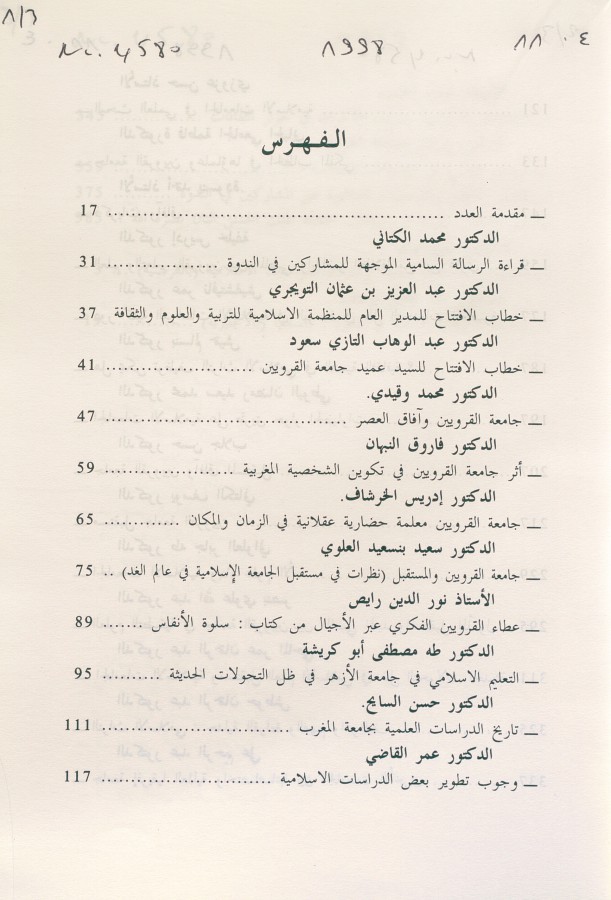 ٨/٦
Nc. 4580 1998 ١١ . ٤
الفهرس
ــ مقدمة العدد ................................................ 17
الدكتور محمد الكتاني
ــ قراءة الرسالة السامية الموجهة للمشاركين في الندوة ................ 31
الدكتور عبد العزيز بن عثمان التويجري
ــ خطاب الافتتاح للمدير العام للمنظمة الاسلامية للتربية والعلوم والثقافة .. 37
الدكتور عبد الوهاب التازي سعود
ــ خطاب الافتتاح للسيد عميد جامعة القرويين ..................... 41
الدكتور محمد وقيدي.
ــ جامعة القرويين وآفاق العصر ................................... 47
الدكتور فاروق النبهان
ــ أثر جامعة القرويين في تكوين الشخصية المغربية .................... 59
الدكتور إدريس الخرشاف.
ــ جامعة القرويين معلمة حضارية عقلانية في الزمان والمكان ............ 65
الدكتور سعيد بنسعيد العلوي
ــ جامعة القرويين والمستقبل (نظرات في مستقبل الجامعة الإسلامية في عالم الغد) .. 75
الأستاذ نور الدين رايص
ــ عطاء القرويين الفكري عبر الأجيال من كتاب : سلوة الأنفاس ....... 89
الدكتور طه مصطفى أبو كريشة
ــ التعليم الاسلامي في جامعة الأزهر في ظل التحولات الحديثة .......... 95
الدكتور حسن السايح.
ــ تاريخ الدراسات العلمية بجامعة المغرب .......................... 111
الدكتور عمر القاضي
ــ وجوب تطوير بعض الدراسات الاسلامية ........................ 117